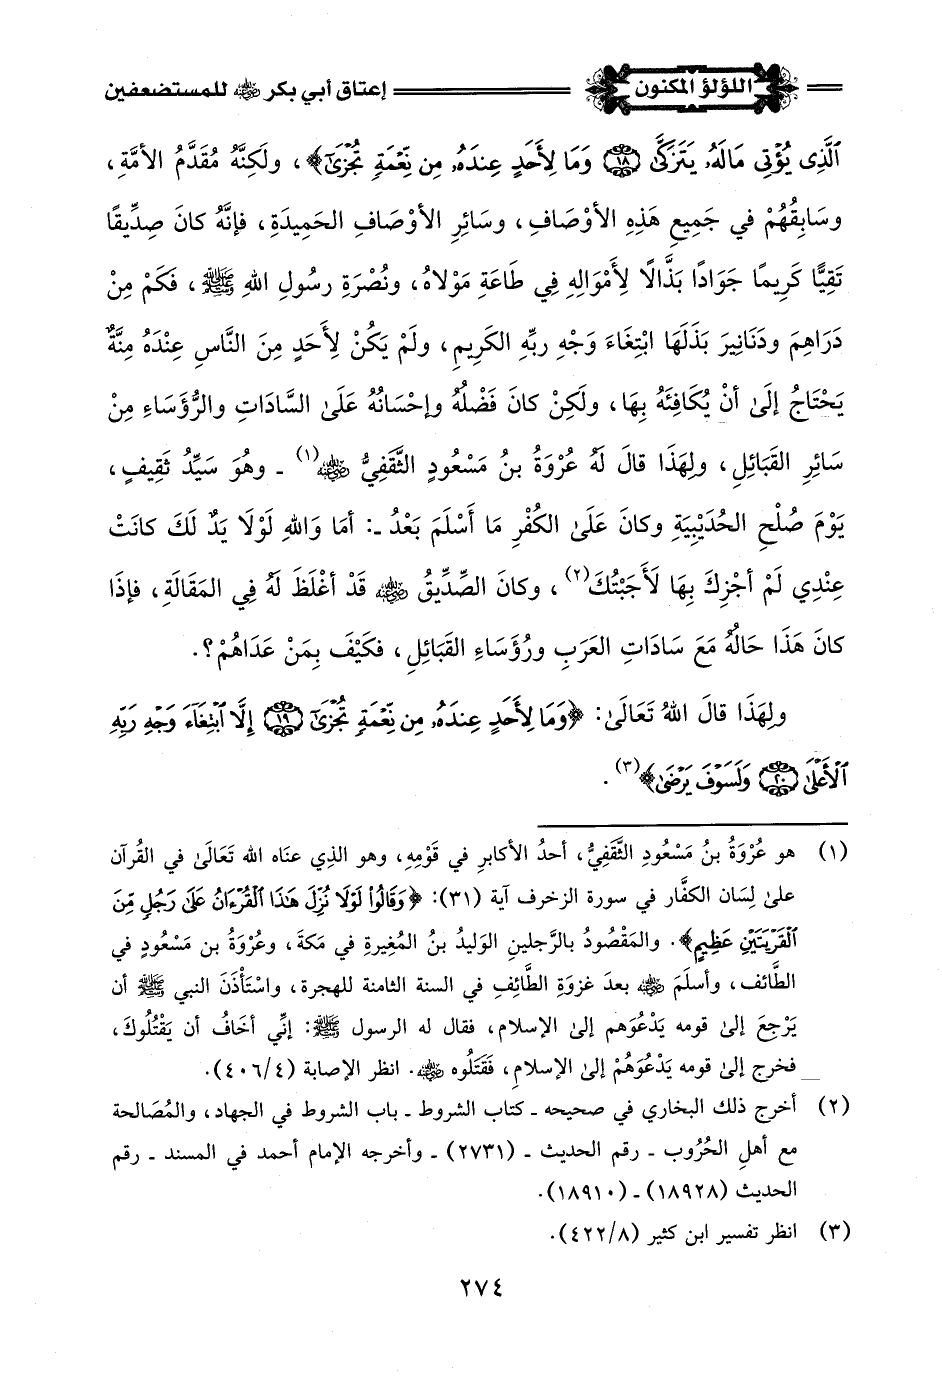 اللؤلؤ المكنون
إعتاق أبي بكر رضي الله عنه للمستضعفين
ٱلَّذِى يُؤْتِى مَالَهُۥ يَتَزَكَّىٰ ﴿١٨﴾ وَمَا لِأَحَدٍ عِندَهُۥ مِن نِّعْمَةٍ تُجْزَىٰٓ﴾، ولَكِنَّهُ مُقَدَّمُ الأمَّةِ،
وسَابِقُهُمْ في جَمِيعِ هَذِهِ الأوْصَافِ، وسَائِرِ الأوْصَافِ الحَمِيدَةِ، فإنَّهُ كانَ صِدِّيقًا
تَقِيًّا كَرِيمًا جَوَادًا بَذَّالًا لِأَمْوَالِهِ فِي طَاعَةِ مَوْلَاهُ، ونُصْرَةِ رسُولِ اللهِ ﷺ، فَكَمْ مِنْ
دَرَاهِمَ ودَنَانِيرَ بَذَلَهَا ابْتِغَاءَ وَجْهِ ربِّهِ الكَرِيمِ، ولَمْ يَكُنْ لِأَحَدٍ مِنَ النَّاسِ عِنْدَهُ مِنَّةٌ
يَحْتَاجُ إلَى أنْ يُكَافِئَهُ بِهَا، ولَكِنْ كانَ فَضْلُهُ وإحْسَانُهُ عَلَى السَّادَاتِ والرُّؤَسَاءِ مِنْ
سَائِرِ القَبَائِلِ، ولِهَذَا قالَ لَهُ عُرْوَةُ بنُ مَسْعُودٍ الثَّقَفِيُّ رضي الله عنه(١) - وهُوَ سَيِّدُ ثَقِيفٍ،
يَوْمَ صُلْحِ الحُدَيْبِيَةِ وكانَ عَلَى الكُفْرِ مَا أَسْلَمَ بَعْدُ -: أمَا وَاللهِ لَوْلَا يَدٌ لَكَ كانَتْ
عِنْدِي لَمْ أجْزِكَ بِهَا لَأَجَبْتُكَ(٢)، وكانَ الصِّدِّيقُ رضي الله عنه قَدْ أغْلَظَ لَهُ فِي المَقَالَةِ، فإذَا
كانَ هَذَا حَالُهُ مَعَ سَادَاتِ العَرَبِ ورُؤَسَاءِ القَبَائِلِ، فكَيْفَ بِمَنْ عَدَاهُمْ؟.
ولِهَذَا قالَ اللهُ تَعَالَى: ﴿وَمَا لِأَحَدٍ عِندَهُۥ مِن نِّعْمَةٍ تُجْزَىٰٓ ﴿١٩﴾ إِلَّا ٱبْتِغَآءَ وَجْهِ رَبِّهِ
ٱلْأَعْلَىٰ ﴿٢٠﴾ وَلَسَوْفَ يَرْضَىٰ﴾(٣).
(١) هو عُرْوَةُ بنُ مَسْعُودٍ الثَّقَفِيُّ، أحدُ الأكابِرِ في قَوْمِهِ، وهو الذِي عناه الله تَعَالَى في القُرآن
على لِسَان الكفَّار في سورة الزخرف آية (٣١): ﴿وَقَالُوا۟ لَوْلَا نُزِّلَ هَٰذَا ٱلْقُرْءَانُ عَلَىٰ رَجُلٍ مِّنَ
ٱلْقَرْيَتَيْنِ عَظِيمٍ﴾. والمَقْصُودُ بالرَّجلينِ الوَليدُ بنُ المُغِيرةِ في مَكةَ، وعُرْوَةُ بن مَسْعُودٍ في
الطَّائف، وأسلَمَ رضي الله عنه بعدَ غزوَةِ الطَّائِفِ في السنة الثامنة للهجرة، واسْتَأْذَنَ النبي ﷺ أن
يَرْجِعَ إلى قومه يَدْعُوَهم إلى الإسلام، فقال له الرسول ﷺ: إنِّي أخَافُ أن يَقْتُلُوكَ،
فخرج إلى قومه يَدْعُوَهُمْ إلى الإسلامِ، فَقَتَلُوه رضي الله عنه. انظر الإصابة (٤٠٦/٤).
(٢) أخرج ذلك البخاري في صحيحه - كتاب الشروط - باب الشروط في الجهاد، والمُصَالحة
مع أهلِ الحُرُوب - رقم الحديث - (٢٧٣١) - وأخرجه الإمام أحمد في المسند - رقم
الحديث (١٨٩٢٨) - (١٨٩١٠).
(٣) انظر تفسير ابن كثير (٤٢٢/٨).
٢٧٤